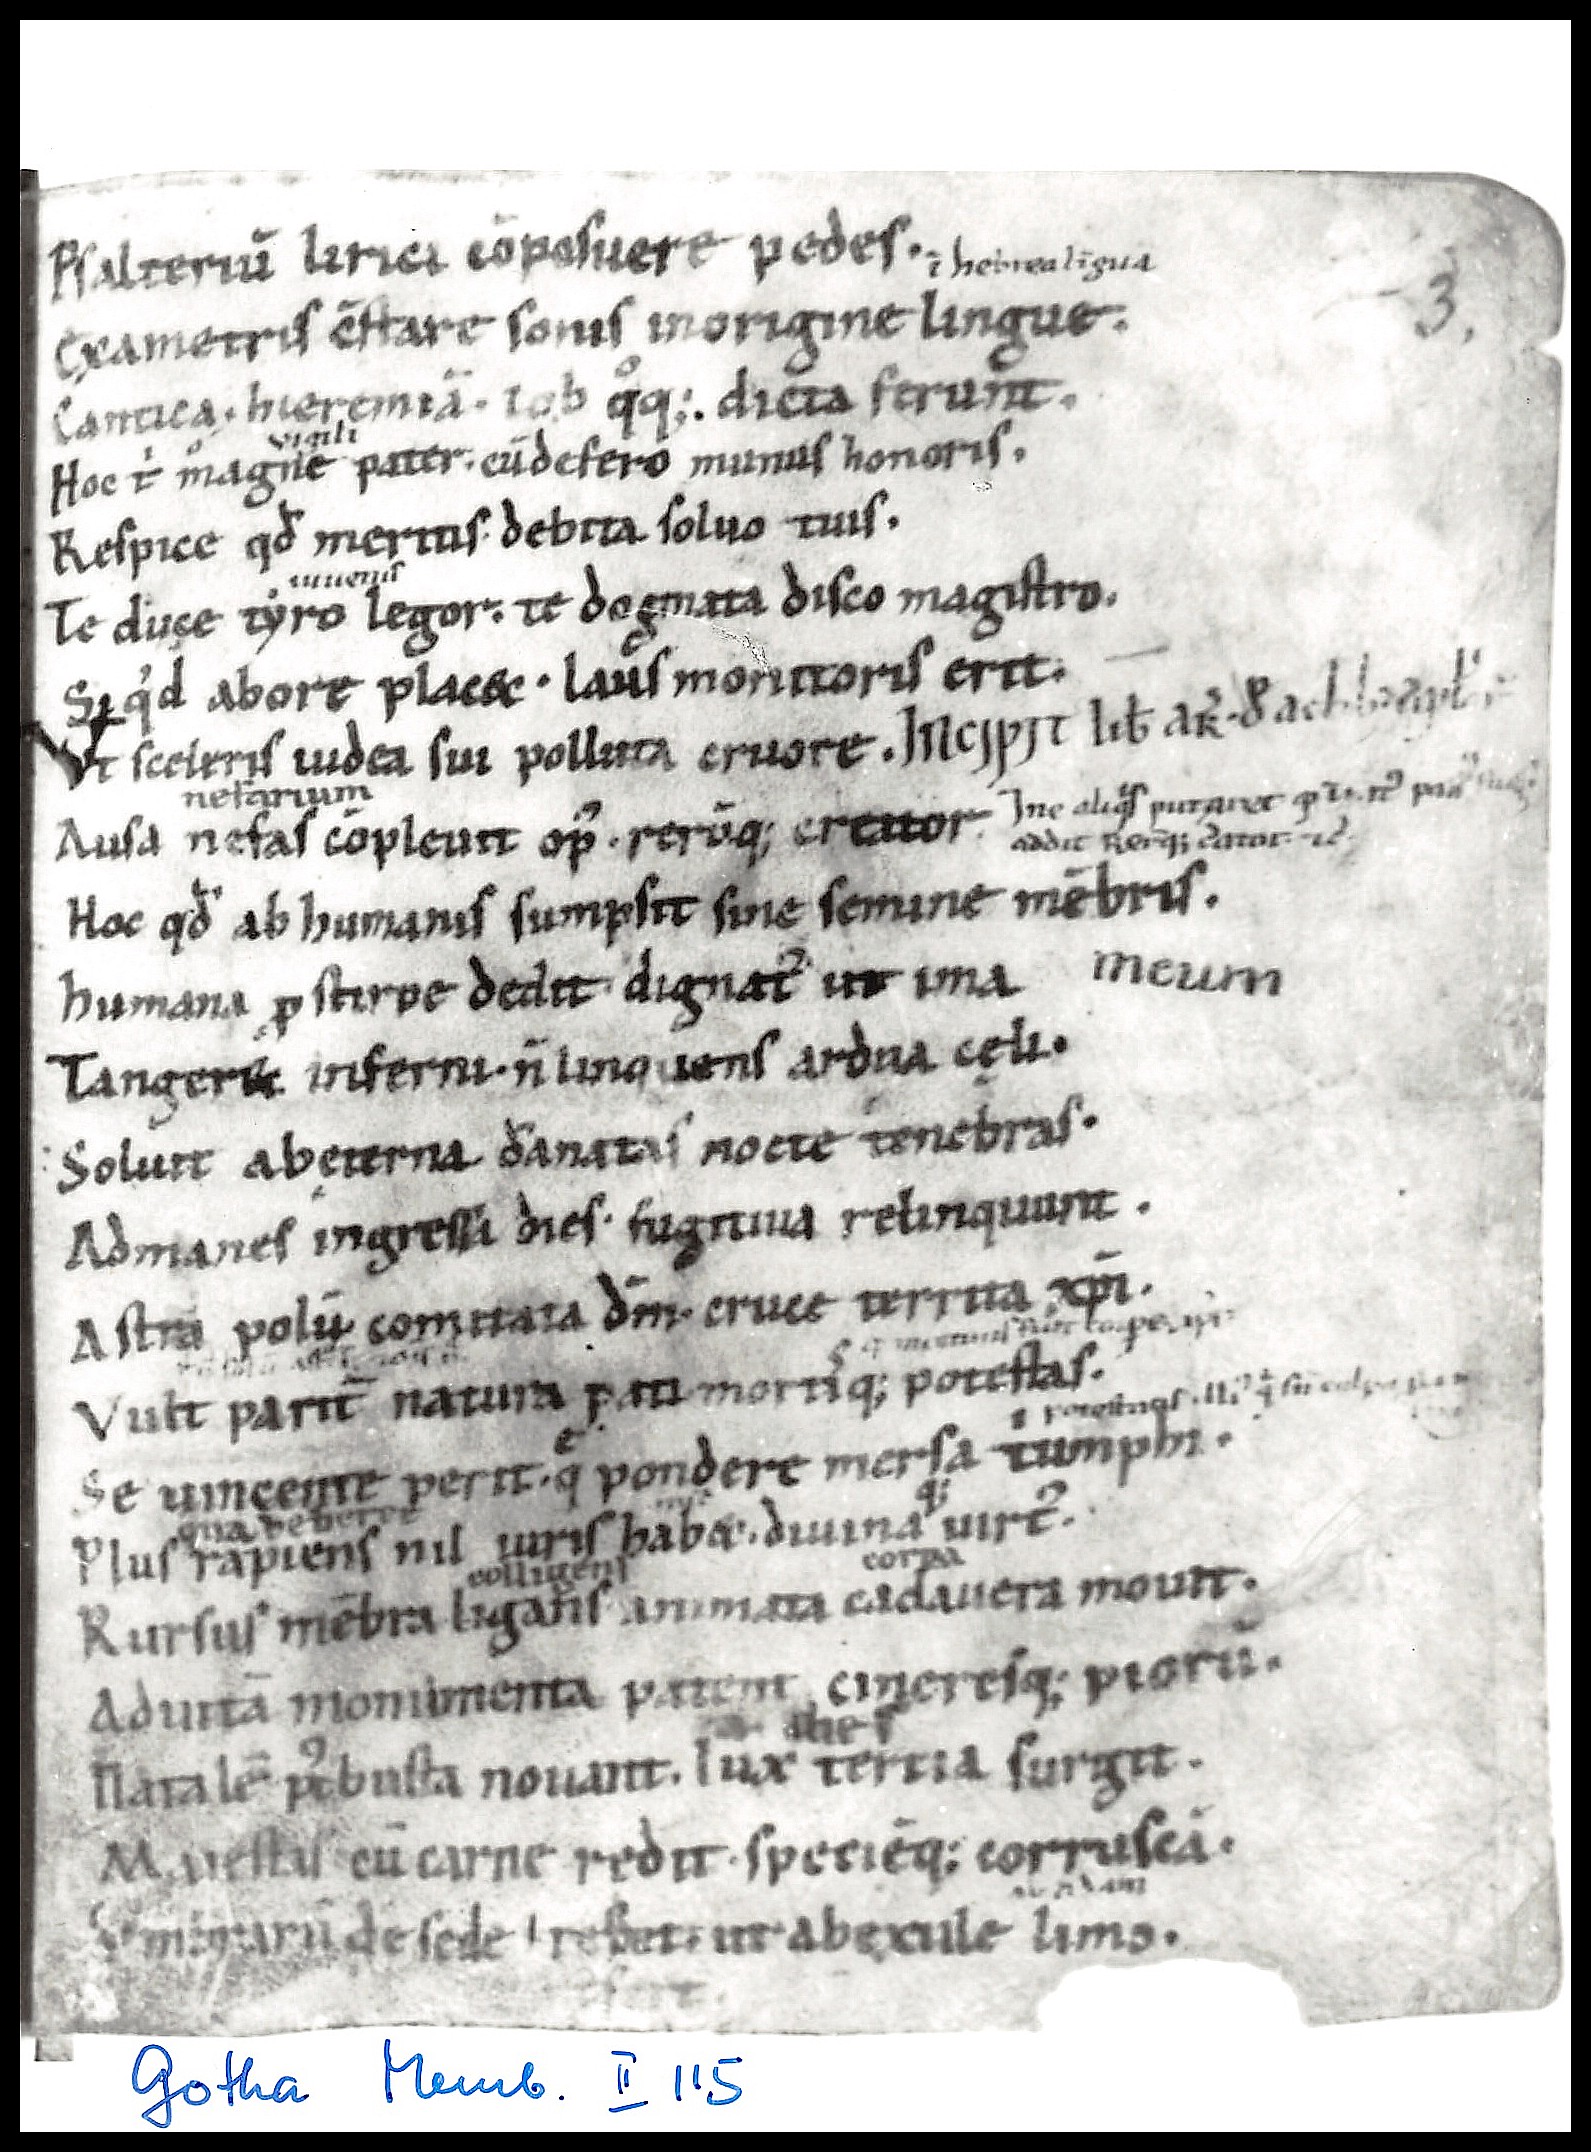 Psalteriū lirici cōposuere pedes.
ī hebrea līgua
3.
Exametris cͨstare sonis inorigine lingue.
Cantica. hieremiā. iob qͦq;. dicta ferunt.
vigili
Hoc tͥ magne pater. cū defero munus honoris.
Respice qđ meritis. debita soluo tuis.
iuuenis
Te duce tyro legor. te dogmata disco magistro.
Si qͥd abore placet. laus monitoris erit.
Vt sceleris iudea sui polluta cruore. Incipit lib
nefarium
Ausa nefas cōpleuit op᾽. rerūq; creator
Hoc qđ ab humanis sumpsit sine semine mēbris.
humana ꝑ stirpe dedit. dignat᾽ ut ima
meum
Tangeret inferni. n̄ linquens ardua cęli.
Soluit ab ęterna dānatas nocte tenebras.
Admanes ingressa dies. fugitiua relinquunt.
Astra polū comitata dn̄m. cruce territa xp̄i.
Vult parit̄ natura pati mortisq; potestas.
Se uincente perit. q̄ pondere mersa tͥumphi.
qua deberet
Plus rapiens nil iuris habet. diuinaq; uirt᾽.
colligens
corpa
Rursus mēbra ligans animata cadauera mouit.
Aduitā monumenta patent cineresq; piorū.
dies
Natalē pͭ busta nouant. lux tertia surgit.
Maiestas cū carne redit. speciēq; corruscā.
de sede refert. ut ab exule limo.
Gotha Memb. II 115